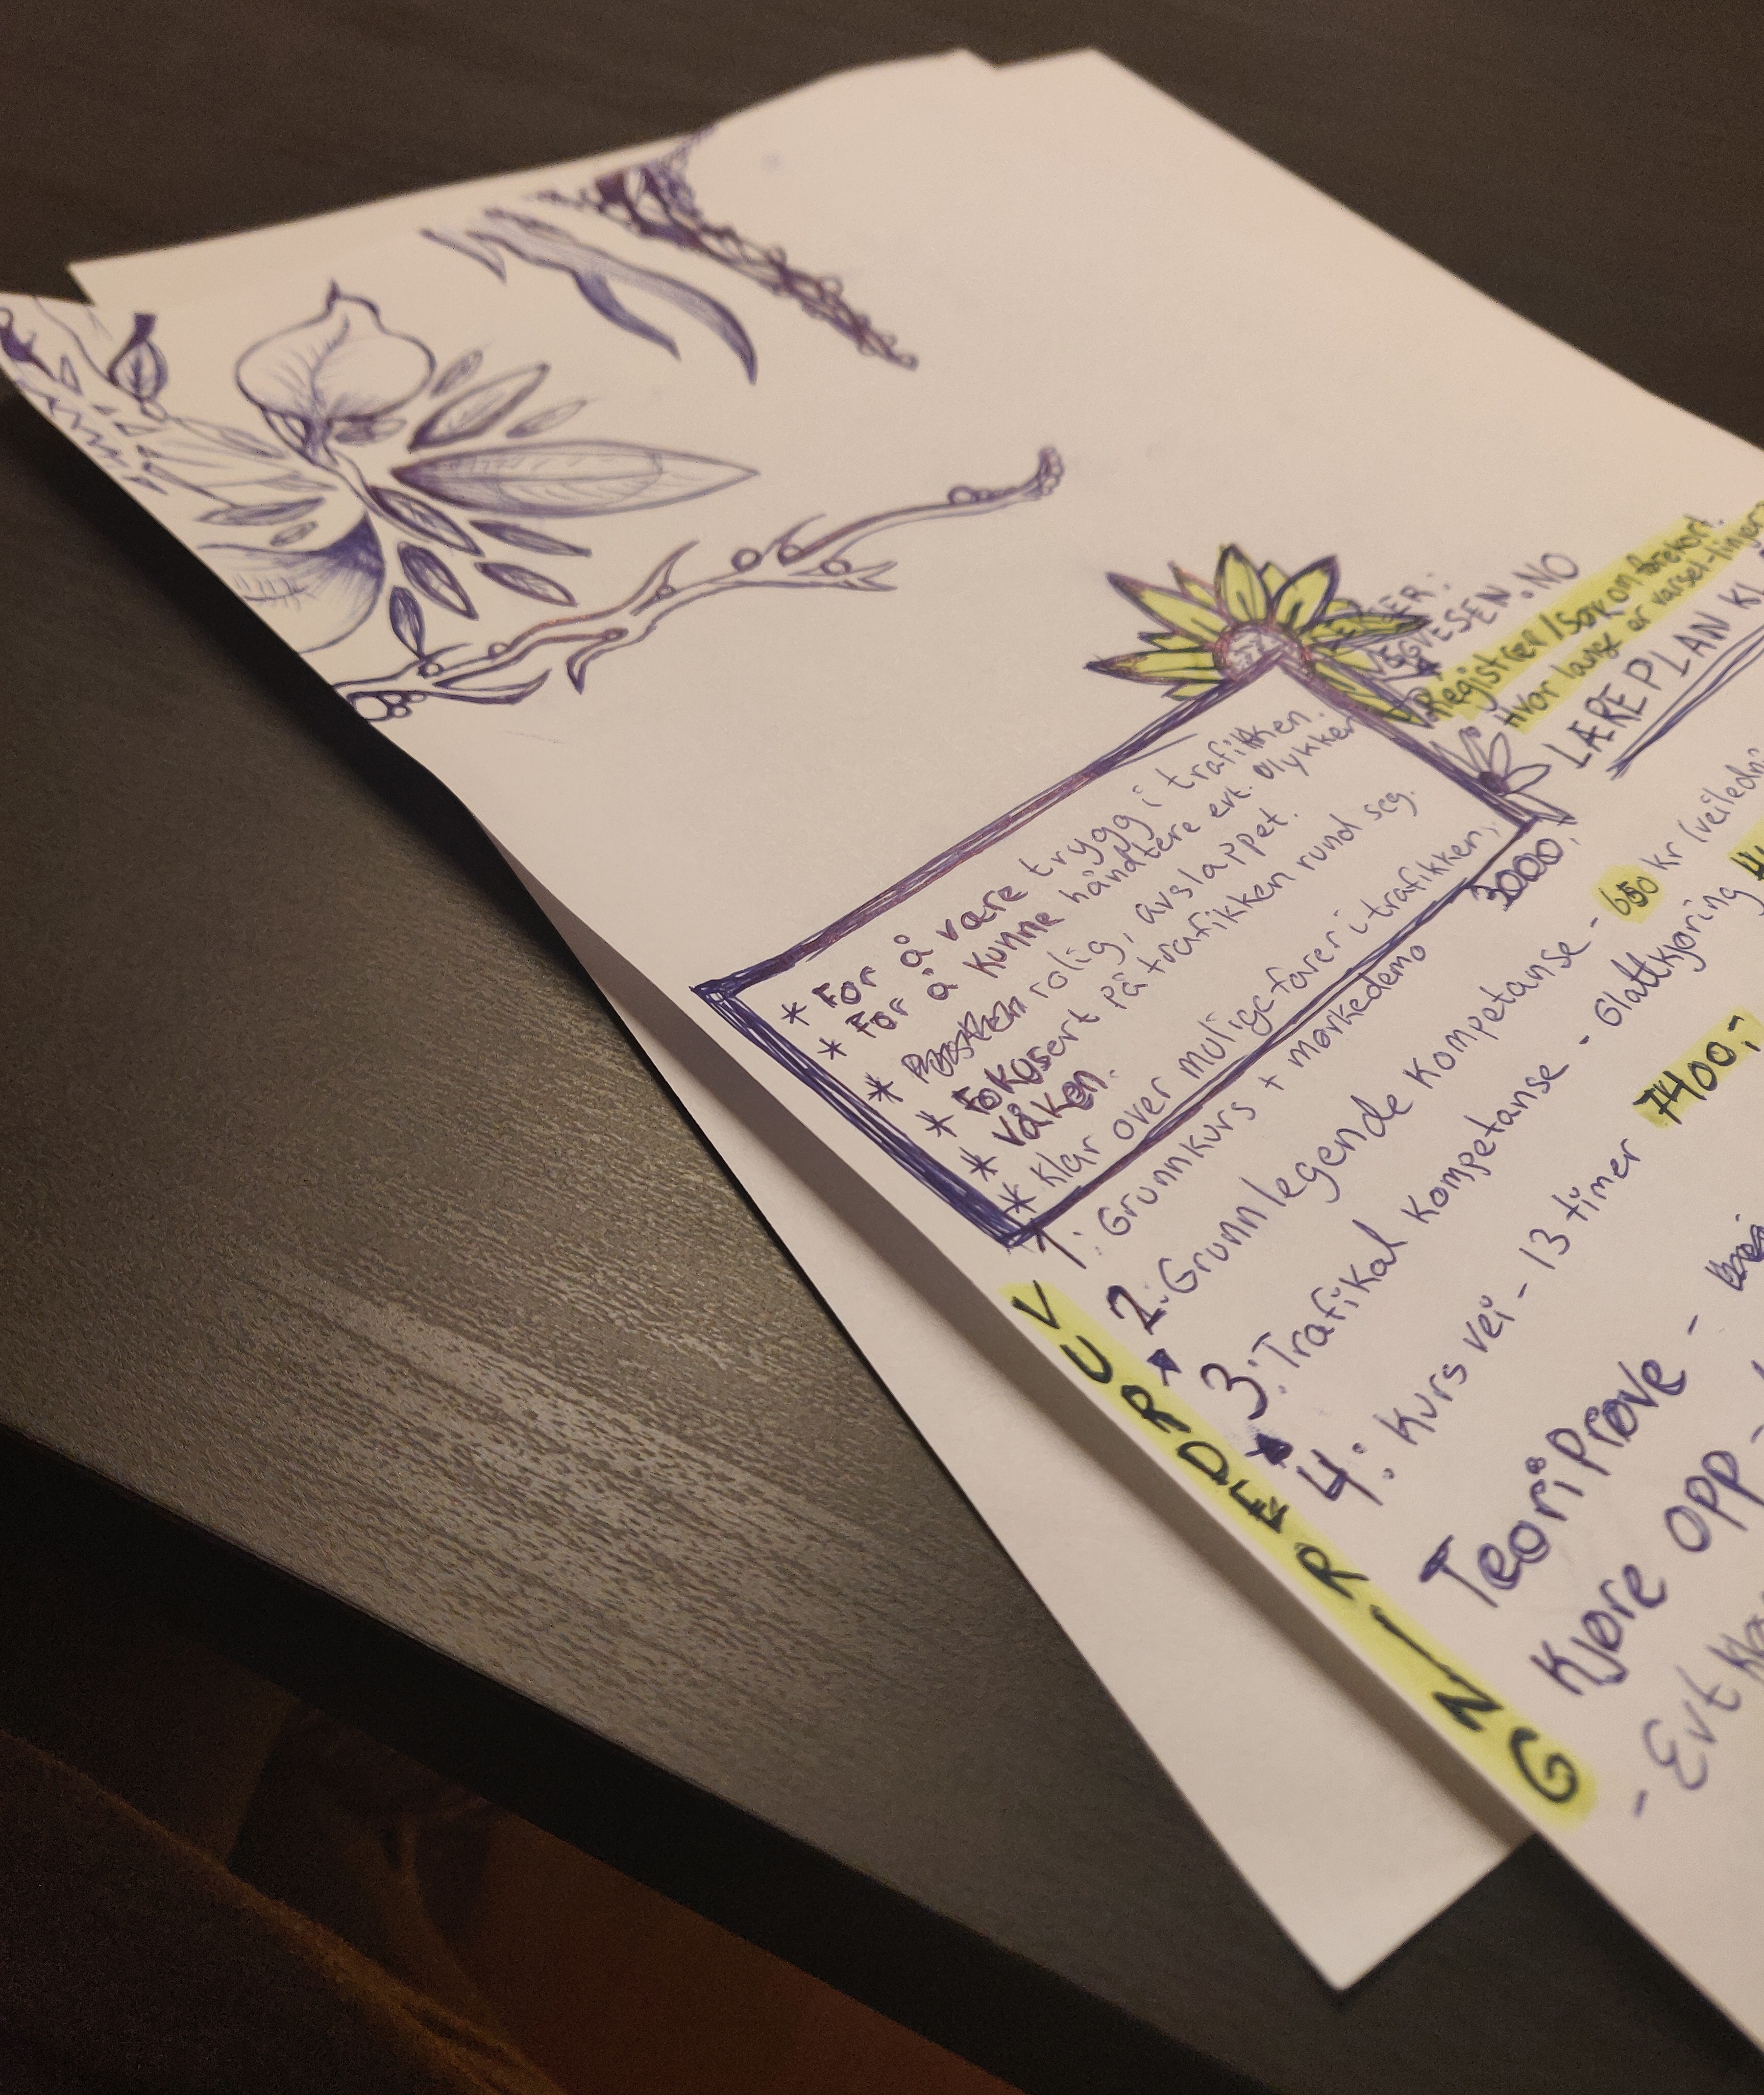 VEGVESEN.NO
Registrer / Søk om førekort.
Hvor langt er varsel-linjer
LÆREPLAN KL
* For å være trygg i trafikken.
* For å kunne håndtere evt. ulykker
* rolig, avslappet.
* Fokusert på trafikken rund seg.
* våken.
* Klar over mulige farer i trafikken.
3000,-
1: Grunnkurs + mørkedemo
2: Grunnlegende kompetanse - 650 kr (veiledn
3: Trafikal kompetanse - Glattkjøring
4: Kurs vei - 13 timer 7400,-
Teoriprøve -
Kjøre opp -
- Evt
VURDERING